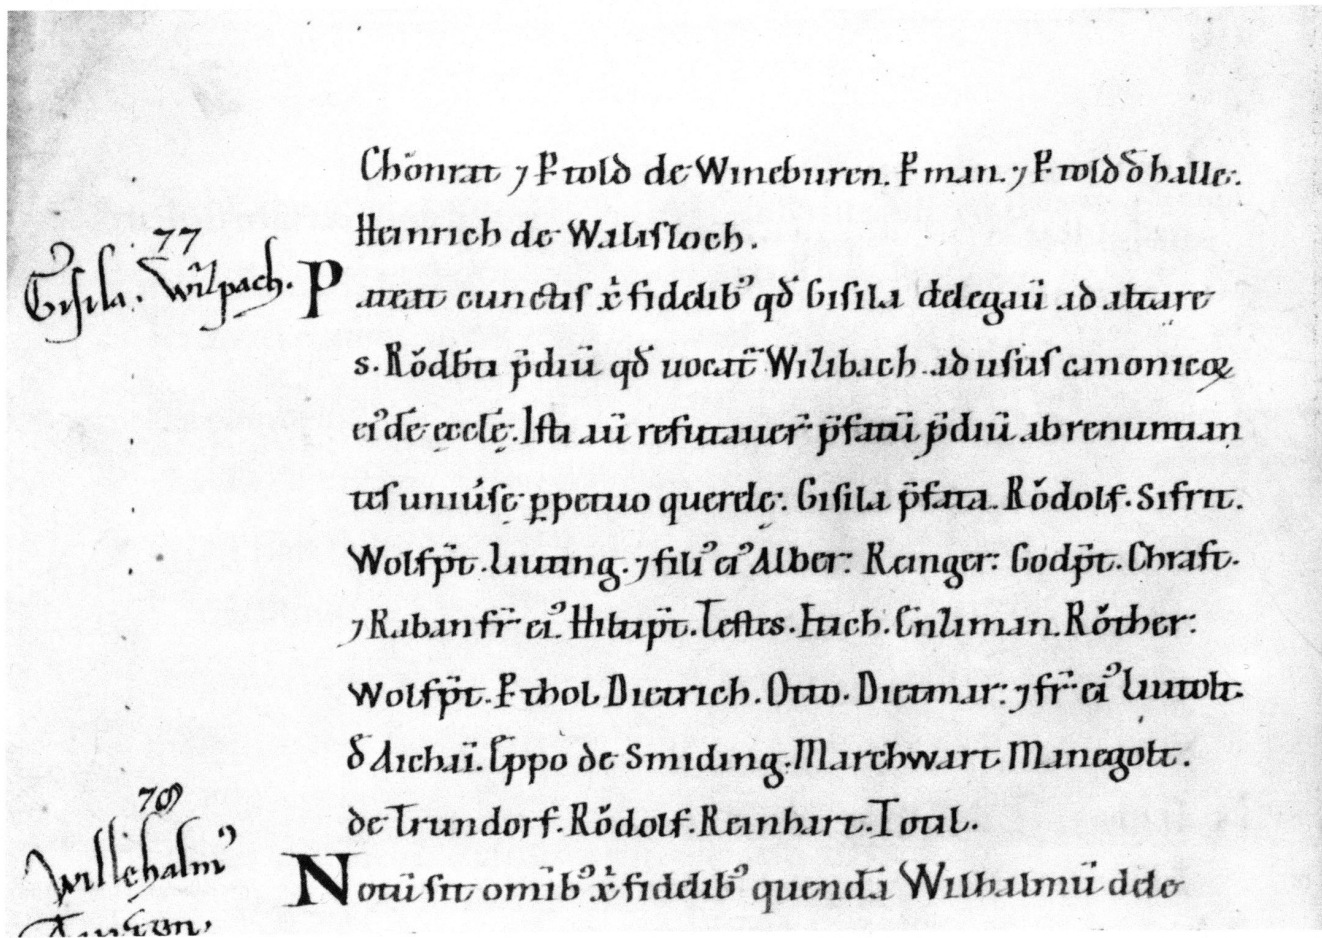 Chǒnrat ⁊ P̲̄told de Wineburen. P̄man. ⁊ P̄told đ halle.
Heinrich de Walisloch.
77
Gisila. Wilpach.
P ateat cunctis x̄ fidelibꝰ qđ Gisila delegauı̄ ad altare
s. Rǒdb̄ti p̄diū qđ uocat̄ Wilibach. ad usus canonicoꝝ
eiꝰdē ęcclę̄. Isti aū refutauer̄ p̄fatū p̄diū abrenuntian
tes uniūsę ꝑpetuo querelę. Gisila p̄fata. Rǒdolf. Sifrit.
Wolfp̄t. Liuting. ⁊ filiꝰ eiꝰ Alber. Reinger. Godp̄t. Chraft.
⁊ Raban fr̄ eiꝰ. Hiltip̄t. Testes. Itich. Enziman. Rǒther.
Wolfp̄t. P̄thol. Dietrich. Otto. Dietmar. ⁊ fr̄ eiꝰ Liutolt.
đ Aichaı̄. Eppo de Smiding. Marchwart. Manegolt.
de Trundorf. Rǒdolf. Reinhart. Total.
Willehalmꝰ
Notū sit omı̄bꝰ x̄ fidelibꝰ quendā Wilhalmū dele